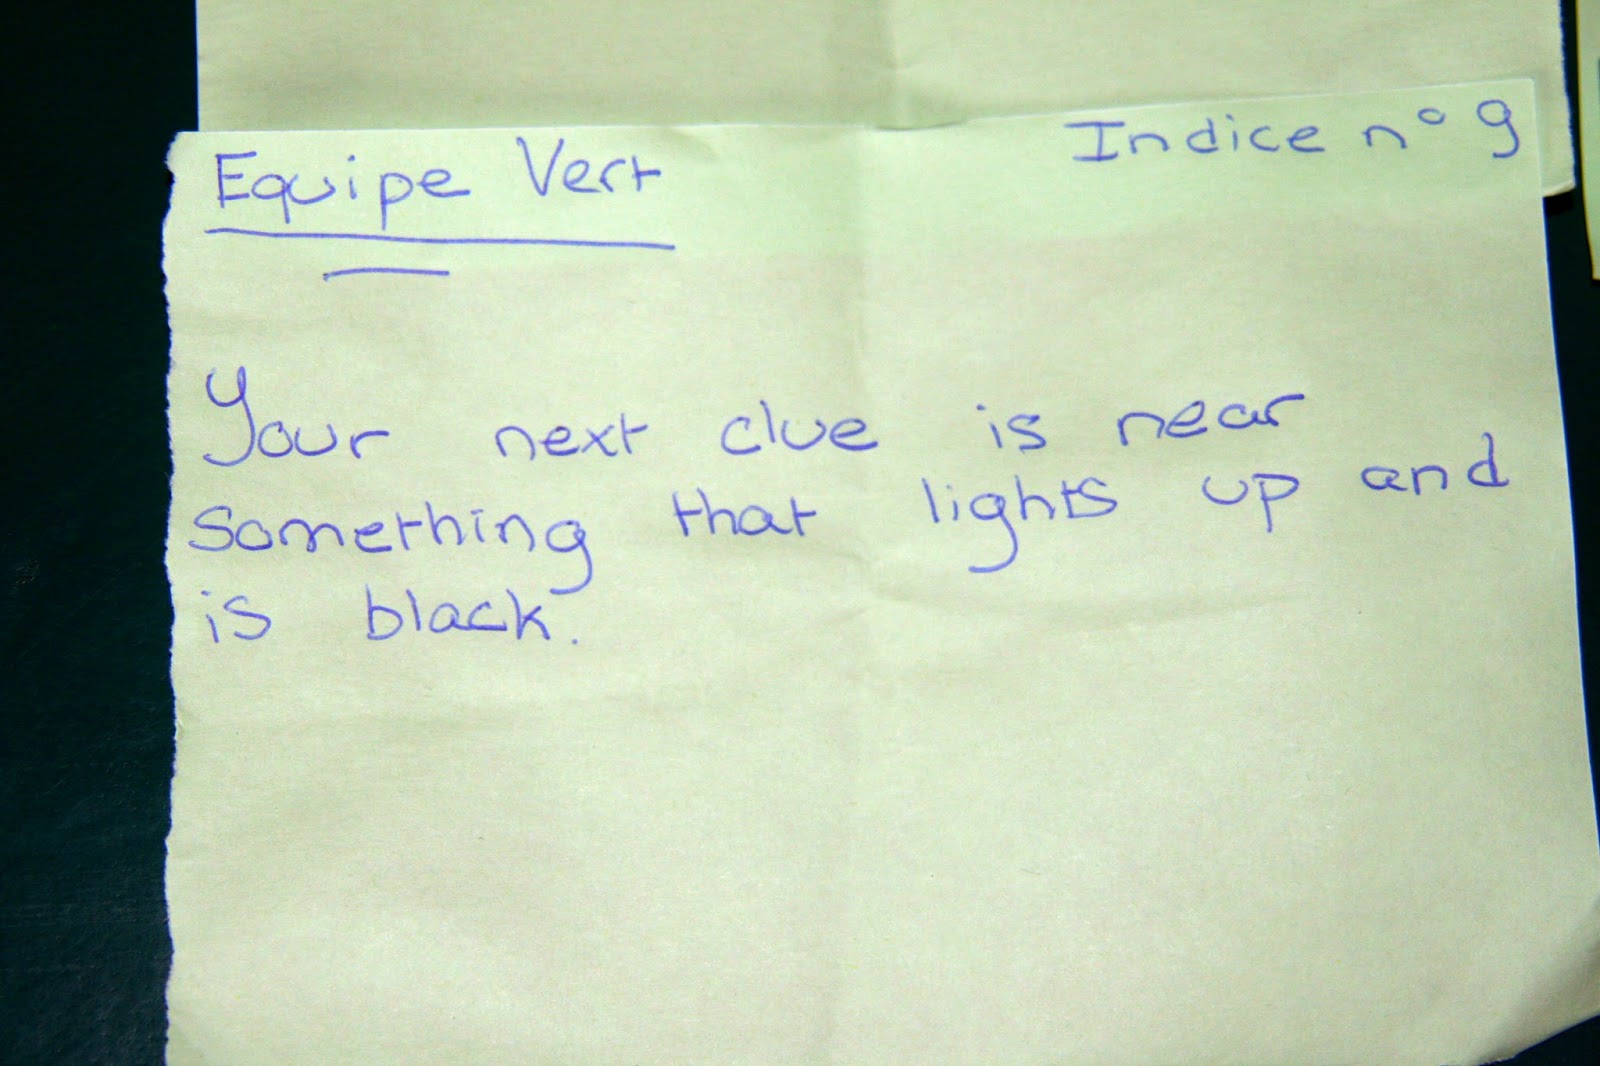 Equipe Vert
Indice n° 9
Your next clue is near
something that lights up and
is black.